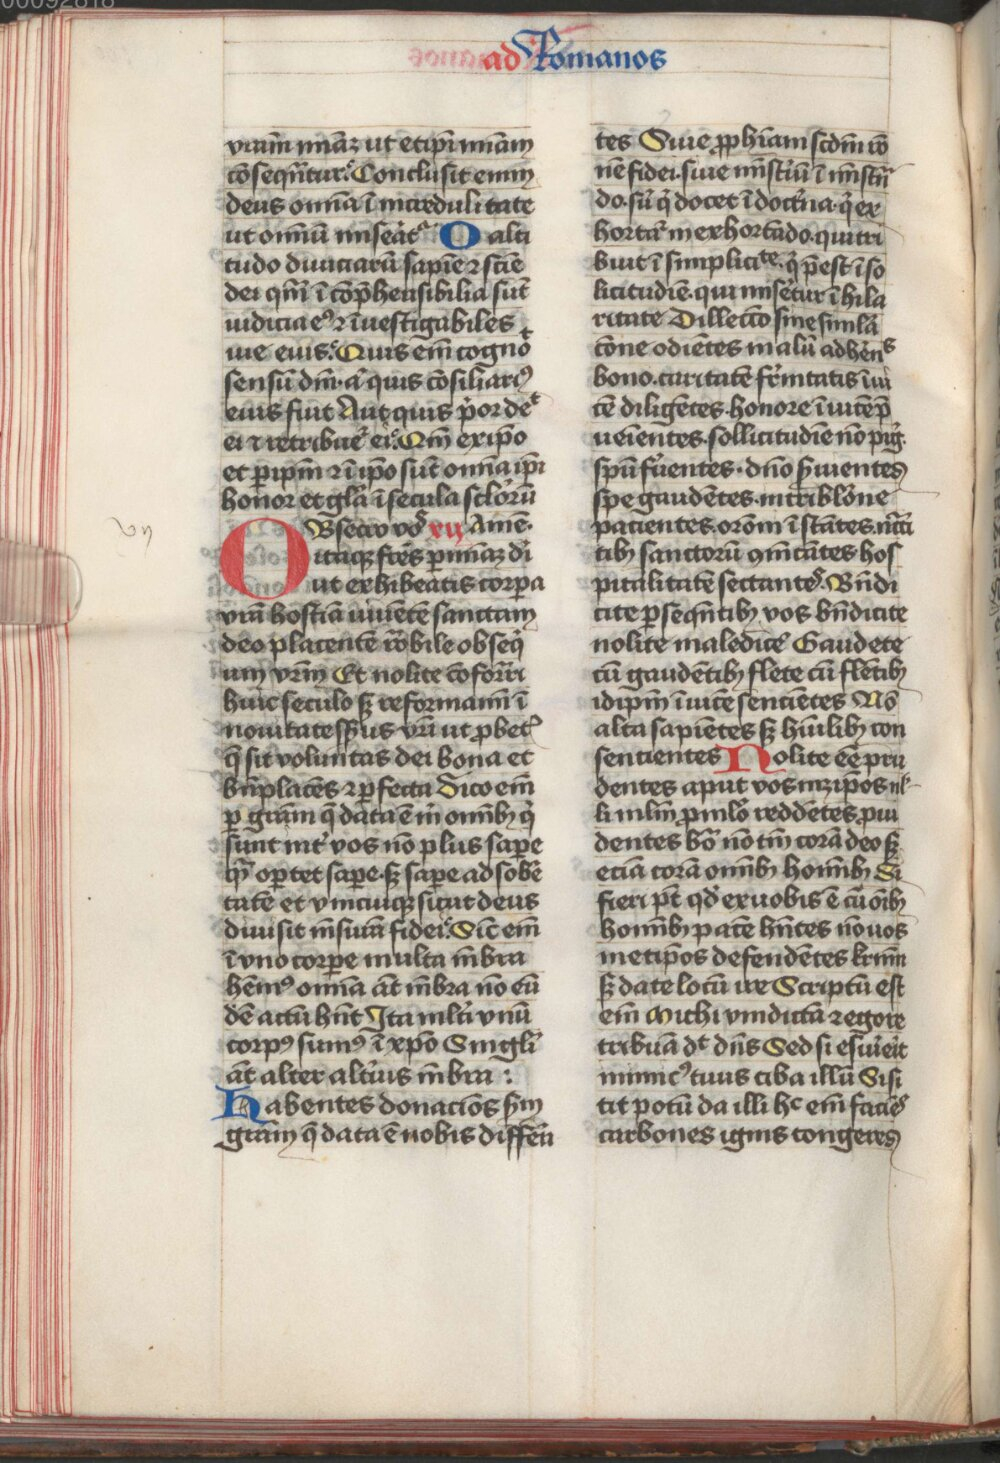 00092818
ad Romanos
vr̄am mīaꝫ ut et ip̄i mīam
cōsequātur. Conclusit enim
deus omnīa ī incredulitate
ut omniū miseāt᷑ O alti
tudo diuiciarū sapīe ⁊ scīe
dei qm̄ ī cōp̄hensibilia sūt
iudicia eꝰ ⁊ īuestigabiles
uie eius. Quis em̄ cogno
sensū dn̄i aut quis cōsiliariꝰ
eius fuit Aut quis p̓or dedt
ei ⁊ retribuet᷑ ei. Qm̄ ex ip̄o
et ꝑ ip̄m ⁊ ī ip̄o sūt omnīa ip̄i
honor et glīa ī secula sclōrū
OBsecro vos xij Amē.
itaqꝫ fr̄es ꝑ mīaꝫ di
ut exhibeatis corpora
vr̄a hostiā uiuētē sanctam
deo placentē rōbile obseq̓
um vr̄m Et nolite cōform̄ri
huic seculo sꝫ reformam̄i ī
nouitate sēsus vr̄i ut ꝓbet᷑
q̄ sit voluntas dei bona et
bn̄placēs ⁊ ꝑfecta Dico em̄
ꝑ gr̄am q̄ data ē m̓ omīb; q̓
sunt int̓ vos nō plus sape
qm̄ oꝑtet sape sꝫ sape ad sobē
tatē et vnicuiqꝫ sicut deus
diuisit mēsurā fidei. Sic em̄
ī vno corpe multa mēbra
hēmꝰ omnīa āt mēbra nō eū
dē actū hn̄t Ita ml̄ti vnū
corpꝰ sumꝰ ī xp̄o Singl̄i
āt alter alt̓ius mēbra :
habentes donacioēs sm̄
gr̄am q̄ data ē nobis diffēn
tes Siue ꝓph̄iam scdm̄ rō
nē fidei. siue mīst̓iū ī mīstrā
do. siū q̓ docet ī doct̓na. q̓ ex
hortat᷑ in exhortādo. qui tri
buit ī simplicitᵗᵉ. q̓ p̄est ī so
licitudīe. qui mis̓etur ī hila
ritate Dillectio sine simula
cōne odiētes malū adhēnˢ
bono. caritatē fr̓nitatis īui
cē diligētes. honore īuicē p̄
ueīentes. sollicitudīe nō pig̓.
sp̄u f̓uentes. dn̄o s̓uientes
spe gaudētes. in tribl̓one
patientes. orōni īstātes. nc̄ti
tib; sanctorū 9mīcātes hos
pitalitatē sectantes. Bn̄di
cite ꝑseqn̄tib; vos bn̄dicite
nolite maledicē Gaudete
cū gaudētib; flete cū flētib;
idip̄m īuicē sentiētes Nō
alta sapiētes sꝫ hūilib; con
sentientes Nolite ēē pru
dentes aput vosmetip̄os nl̄
li mlm̄ p̄ mlō reddētes ꝓui
dentes bōā nō tm̄ corā deo sꝫ
eciā corā omīb; homīb; Si
fieri pt̄ qd̓ ex uobis ē cū oīb;
homīb; pacē hn̄tes nō vos
metip̄os defendētes krmī
sꝫ date locū ire Scriptū est
em̄ Michi vindictā ⁊ ego re
tribuā dᵗ dn̄s Sed si esurīet
inimicꝰ tuus ciba illū Si si
tit potū da illi hᶜ em̄ faciēs
carbones ignis congeres
vij